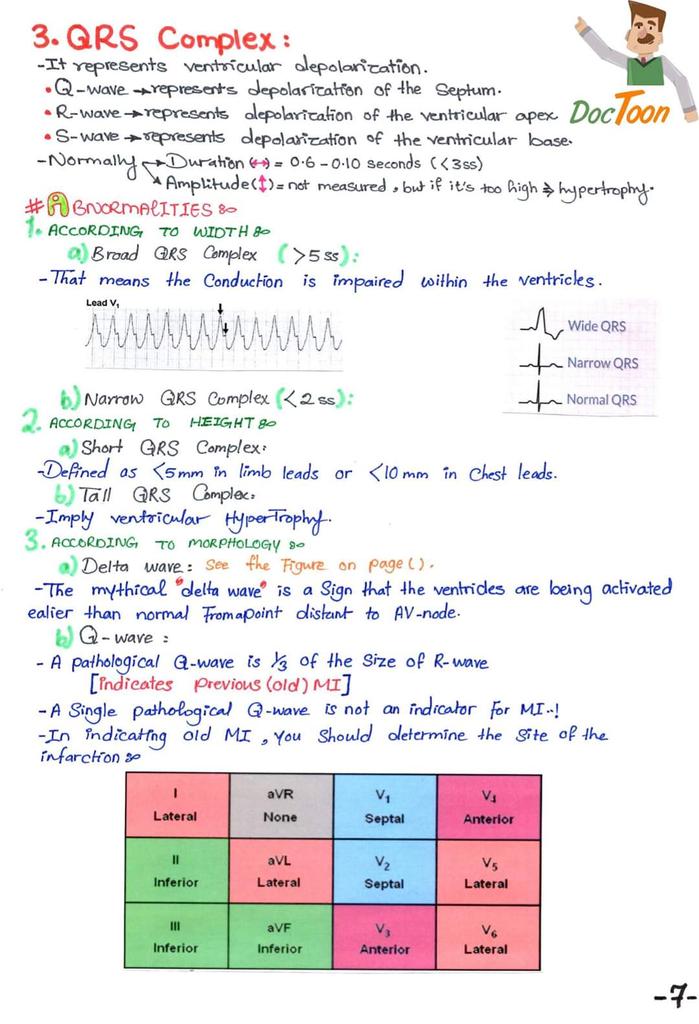 3. QRS Complex:
-It represents ventricular depolarization.
• Q-wave → represents depolarization of the Septum.
• R-wave → represents depolarization of the ventricular apex
DocToon
• S-wave → represents depolarization of the ventricular base.
-Normally → Duration (↔) = 0.6 – 0.10 seconds (<3ss)
→ Amplitude (↕) = not measured, but if it's too high ⇒ hypertrophy.
# ABNORMALITIES
1. ACCORDING TO WIDTH
a) Broad QRS Complex (>5 ss):
- That means the Conduction is impaired within the ventricles.
Lead V₁
Wide QRS
Narrow QRS
Normal QRS
b) Narrow QRS Complex (<2 ss):
2. ACCORDING TO HEIGHT
a) Short QRS Complex:
-Defined as <5mm in limb leads or <10 mm in Chest leads.
b) Tall QRS Complex:
-Imply ventricular HyperTrophy.
3. ACCORDING TO MORPHOLOGY
a) Delta wave: See the Figure on page ( ).
- The mythical "delta wave" is a Sign that the ventricles are being activated
ealier than normal From a point distant to AV-node.
b) Q-wave :
- A pathological Q-wave is 1/3 of the Size of R-wave
[indicates previous (old) MI]
- A Single pathological Q-wave is not an indicator for MI..!
-In indicating old MI, you Should determine the Site of the
infarction
I aVR V₁ V₄
Lateral None Septal Anterior
II aVL V₂ V₅
Inferior Lateral Septal Lateral
III aVF V₃ V₆
Inferior Inferior Anterior Lateral
-7-